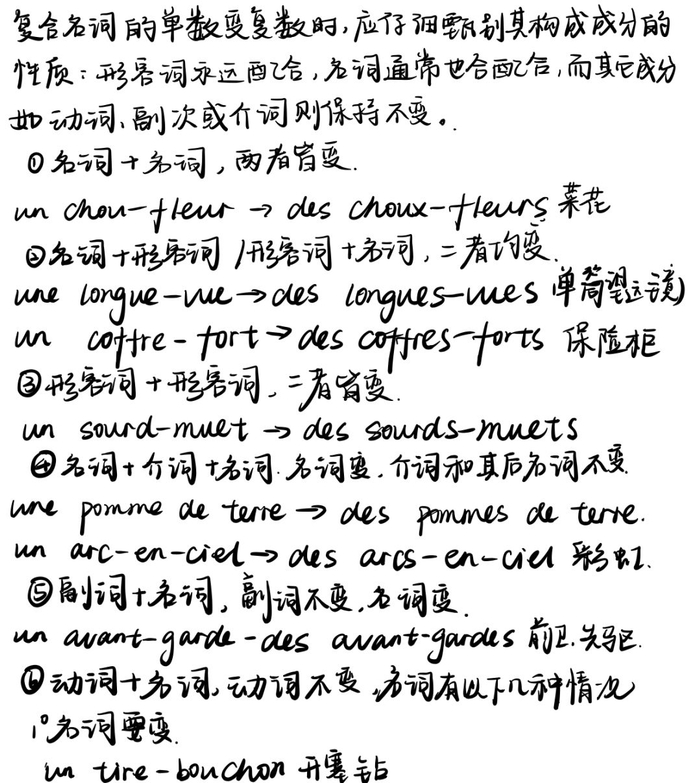 复合名词的单数变复数时,应仔细甄别其构成成分的
性质:形容词永远配合,名词通常也会配合,而其它成分
如动词、副次或介词则保持不变。
①名词+名词,两者皆变.
un chou-fleur → des choux-fleurs 菜花
②名词+形容词/形容词+名词,二者均变.
une longue-vue→des longues-vues 单筒望远镜)
un coffre-fort→des coffres-forts 保险柜
③形容词+形容词,二者皆变.
un sourd-muet → des sourds-muets
④名词+介词+名词.名词变,介词和其后名词不变
une pomme de terre → des pommes de terre.
un arc-en-ciel→ des arcs-en-ciel 彩虹.
⑤副词+名词,副词不变,名词变.
un avant-garde-des avant-gardes 前卫.先驱.
⑥动词+名词,动词不变,名词有以下几种情况
1°名词要变.
un tire-bouchon 开塞钻